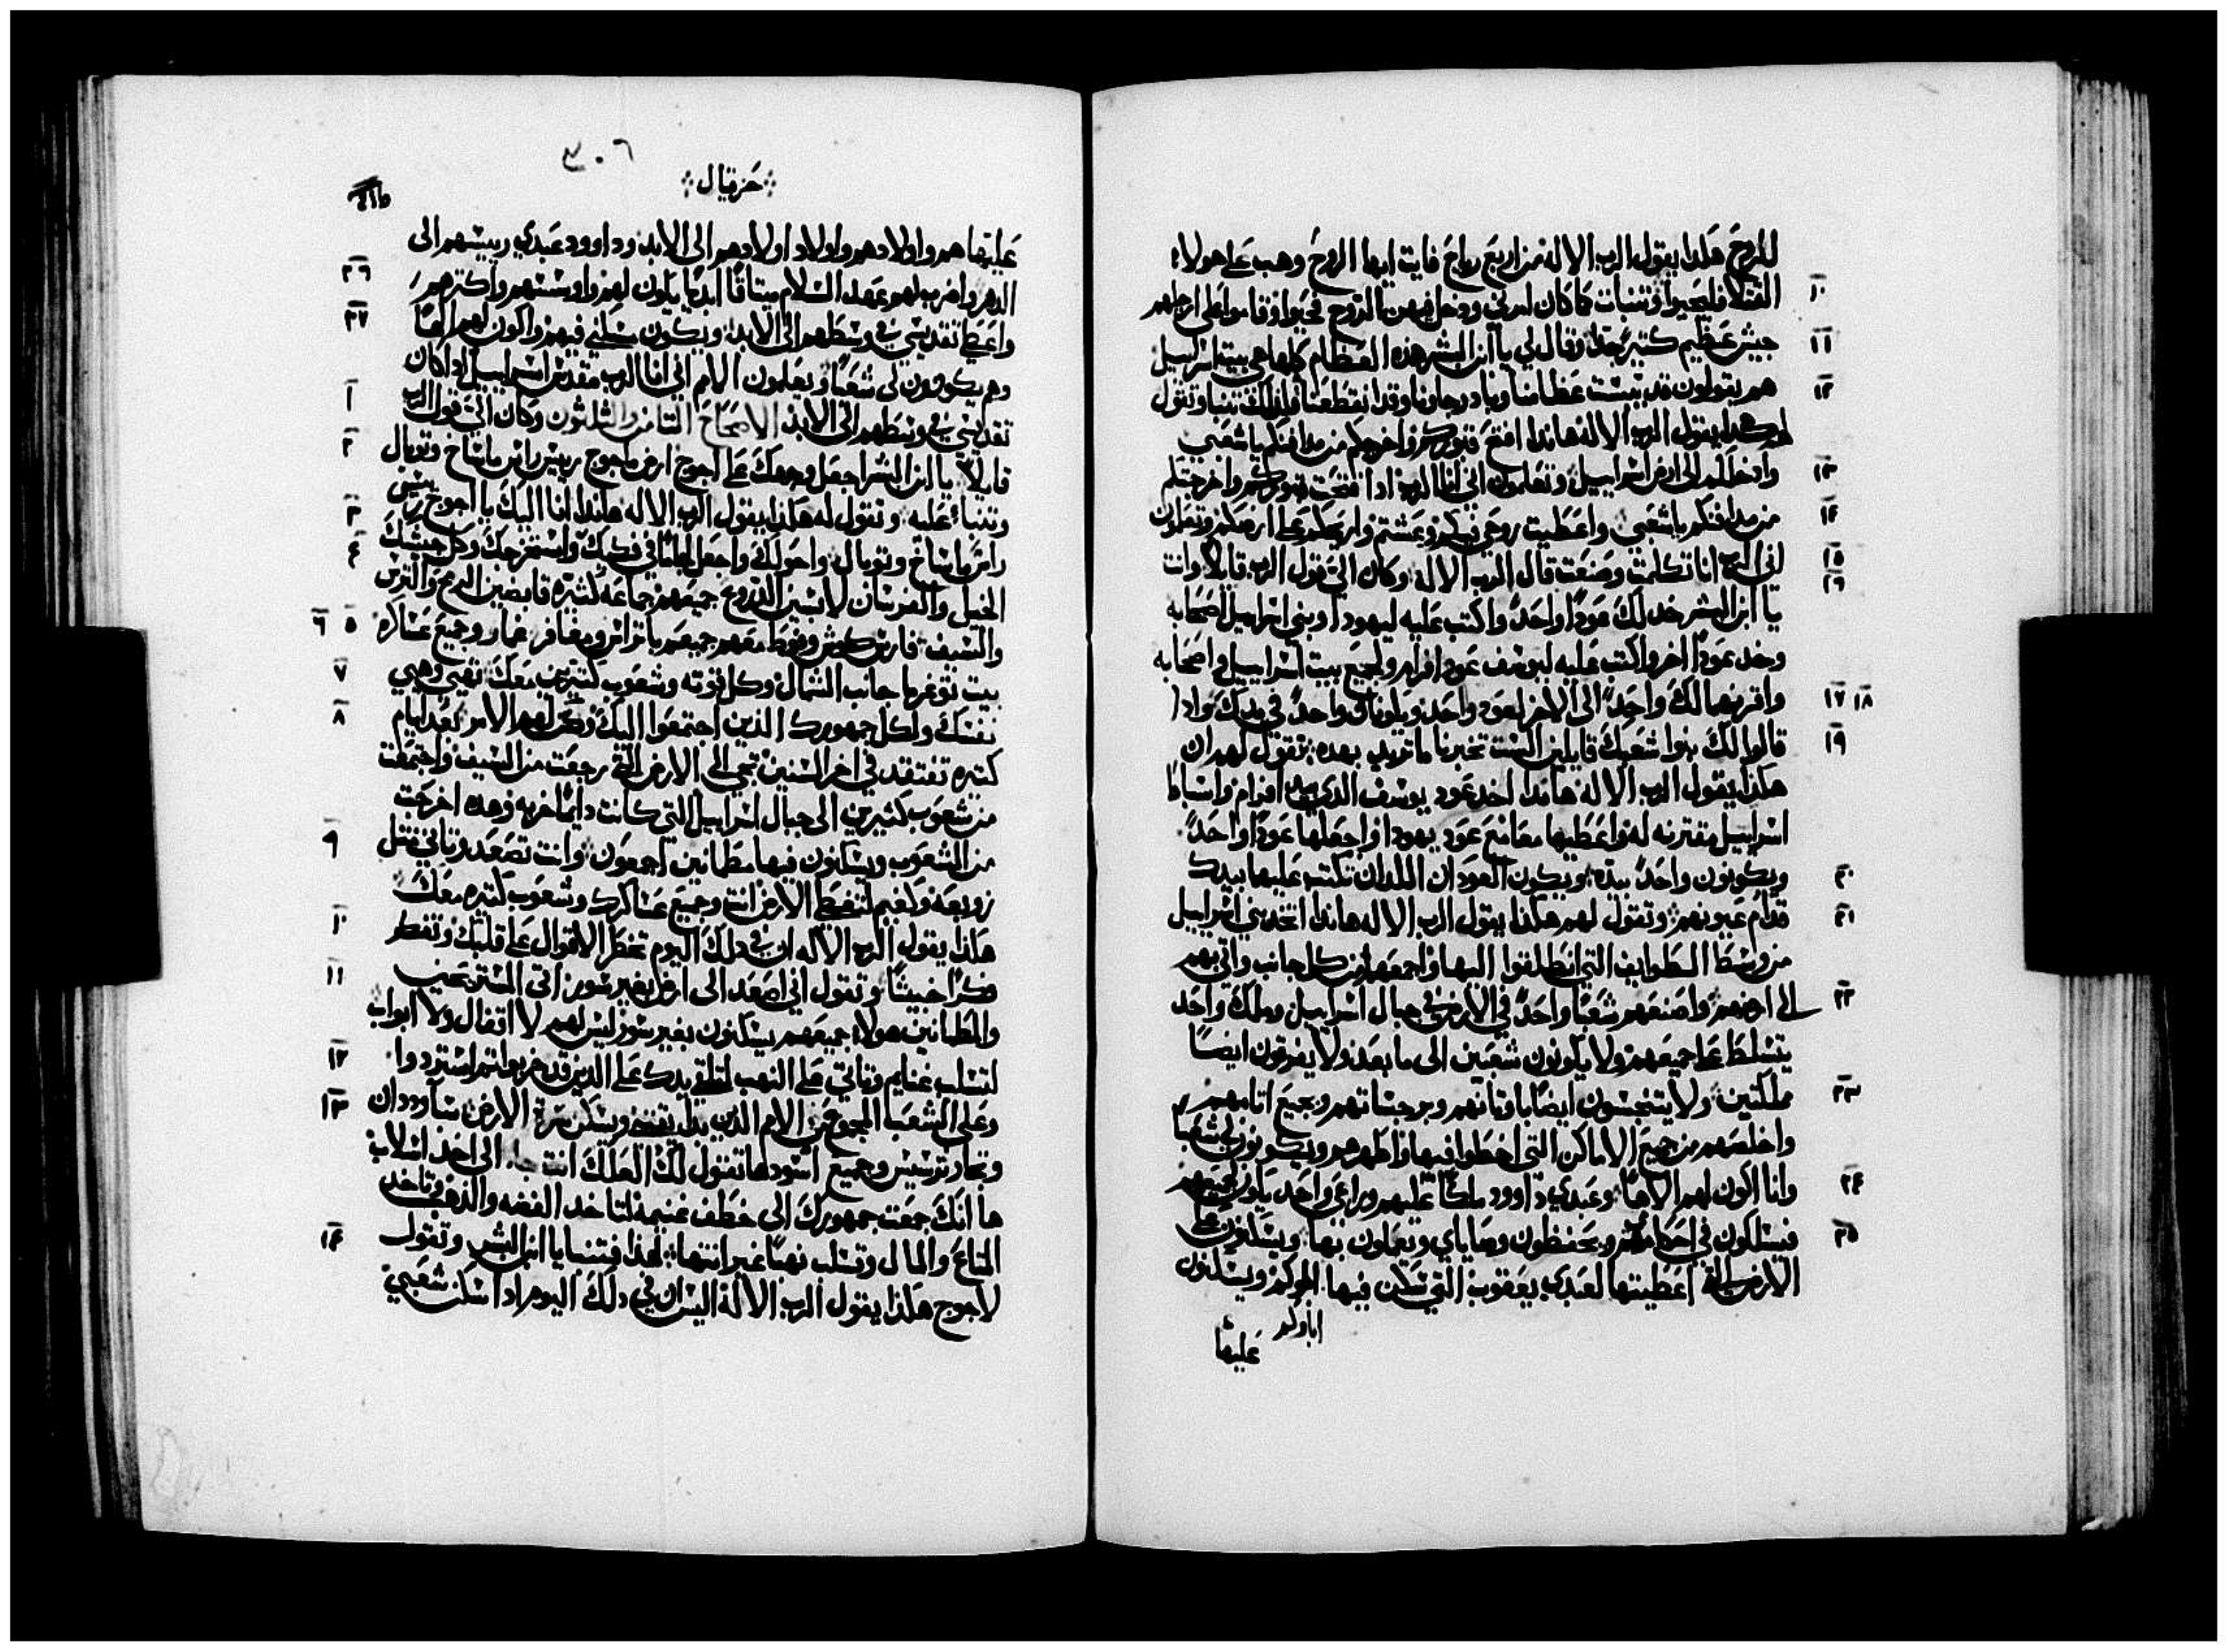 للروح هكذا يقول الرب الاله من اربع رياح فايت ايها الروح وهب على هولاء
القتلا فليحيوا وتنبات كما كان امرني ودخل فيهم الروح فحيوا وقاموا على ارجلهم ١٠
جيش عظيم كتير جدا وقال لي يا ابن البشر هذه العظام كلها هي بيت اسراييل ١١
هم يقولون قد يبست عظامنا وباد رجاونا وقد انقطعنا فلذلك تنبا وتقول ١٢
لهم هكدا يقول الرب الاله هاندا افتح قبوركم واخرجكم من مدافنكم يا شعبي
وادخلكم الى ارض اسراييل وتعلمون اني انا الرب ادا فتحت قبوركم واخرجتكم ١٣
من مدافنكم يا شعبي واعطيت روحي فيكم وعشتم واريحكم على ارضكم وتعلمون ١٤
اني الرب انا تكلمت وصنعت قال الرب الاله وكان الي قول الرب قايلا وانت ١٥ ١٦
يا ابن البشر خد لك عودا واحدا واكتب عليه ليهودا وبني اسراييل اصحابه
وخد عودا اخر واكتب عليه ليوسف عود افرام ولجميع بيت اسراييل واصحابه
واقربهما لك واحدا الى الاخر لعود واحد ويكونان واحدا في يدك واد ا ١٧ ١٨
قالوا لك بنوا شعبك قايلين الست تخبرنا ما تريد بهده تقول لهم ان ١٩
هكذا يقول الرب الاله هاندا اخد عود يوسف الدي بيد افرام واسباط
اسراييل مقترنه له واعطيها معا مع عود يهودا واجعلها عودا واحدا
ويكونون واحدا بيده ويكون العودان اللدان تكتب عليها بيدك ٢٠
قدام عيونهم وتقول لهم هكذا يقول الرب الاله هاندا اتخد بني اسراييل ٢١
من وسط الطوايف التي انطلقوا اليها واجمعهم من كل جانب واتي بهم
الى ارضهم واصنعهم شعبا واحدا في الارض في جبال اسراييل وملك واحد ٢٢
يتسلط على جميعهم ولا يكونون شعبين الى ما بعد ولا يفرقون ايضا
مملكتين ولا يتنجسون ايضا باوتانهم وبرجساتهم وجميع اتامهم ٢٣
واخلصهم من جميع الاماكن التي اخطوا فيها واطهرهم ويكونون لي شعبا
وانا اكون لهم الاها وعبدي داوود ملكا عليهم وراعي واحد يكون لجميعهم ٢٤
فيسلكون في احكامي ويحفظون وصاياي ويعملون بها ويسكنون على ٢٥
الارض التي اعطيتها لعبدي يعقوب التي سكن فيها ابوكم ويسكنون
اباوكم
عليها
٣٠٦
حزقيال
عليها هم واولادهم واولاد اولادهم الى الابد وداوود عبدي رييسهم الى
الدهر واضرب لهم عهد السلام ميتاقا ابديا يكون لهم واوسسهم واكترهم ٢٦
واعطي تقديسي في وسطهم الى الابد ويكون مسكني فيهم واكون لهم الها ٢٧
وهم يكونون لي شعبا ويعلمون الامم اني انا الرب مقدس اسراييل ادا كان
تقديسي في وسطهم الى الابد الاصحاح التامن والثلثون وكان الي قول الرب ١
قايلا يا ابن البشر اجعل وجهك على اجوج ارض ماجوج رييس راس ماشاخ وتوبال ٢
وتنباء عليه وتقول له هكذا يقول الرب الاله هاندا انا اليك يا اجوج رييس ٣
راس ماشاخ وتوبال واحولك واجعل لجاما في فكيك واستخرجك وكل جيشك ٤
الخيل والفرسان لابسين الدروع جميعهم جماعه كثيره قابضين الرمح والترس
والسيف فارس كوش وفوط معهم جميعهم باتراس ومغافر غمار وجميع عساكره ٥ ٦
بيت توغرما جانب الشمال وكل قوته وشعوب كثيرين معك تهيي وهيي ٧
نفسك ولكل جمهورك الذين اجتمعوا اليك وكن لهم الامر بعد ايام ٨
كتيره تفتقد في اخر السنين تجي الى الارض التي رجعت من السيف واجتمعت
من شعوب كثيرين الى جبال اسراييل التي كانت دايما خربه وهده اخرجت
من الشعوب ويسكنون فيها مطمانين اجمعون وانت تصعد وتاتي مثل ٩
زوبعه وكغيم لتغطي الارض انت وجميع عساكرك وشعوب كتيره معك
هكذا يقول الرب الاله ان في دلك اليوم تخطر الاقوال على قلبك وتفكر ١٠
فكرا خبيثا وتقول اني اصعد الى ارض بغير سور اتى المستريحين ١١
والمطمانين هولاء جميعهم يسكنون بغير سور ليس لهم لا اقفال ولا ابواب
لتسلب غنايم وتاتي على النهب لتلقي يدك على الذين قد خربوا تم استردوا ١٢
وعلى الشعب المجموع من الامم الذين بدا يقتني ويسكن سرة الارض سبا وددان ١٣
وتجار ترسيس وجميع اسودها تقول لك العلك انت جا الى اخد اسلاب
ها انك جمعت جمهورك الى خطف غنيمه لتاخد الفضه والذهب وتاخد
المتاع والمال وتسلب نهبا غير انتها لهذا فتنبا يا ابن البشر وتقول ١٤
لاجوج هكذا يقول الرب الاله اليس ان في دلك اليوم ادا سكن شعبي